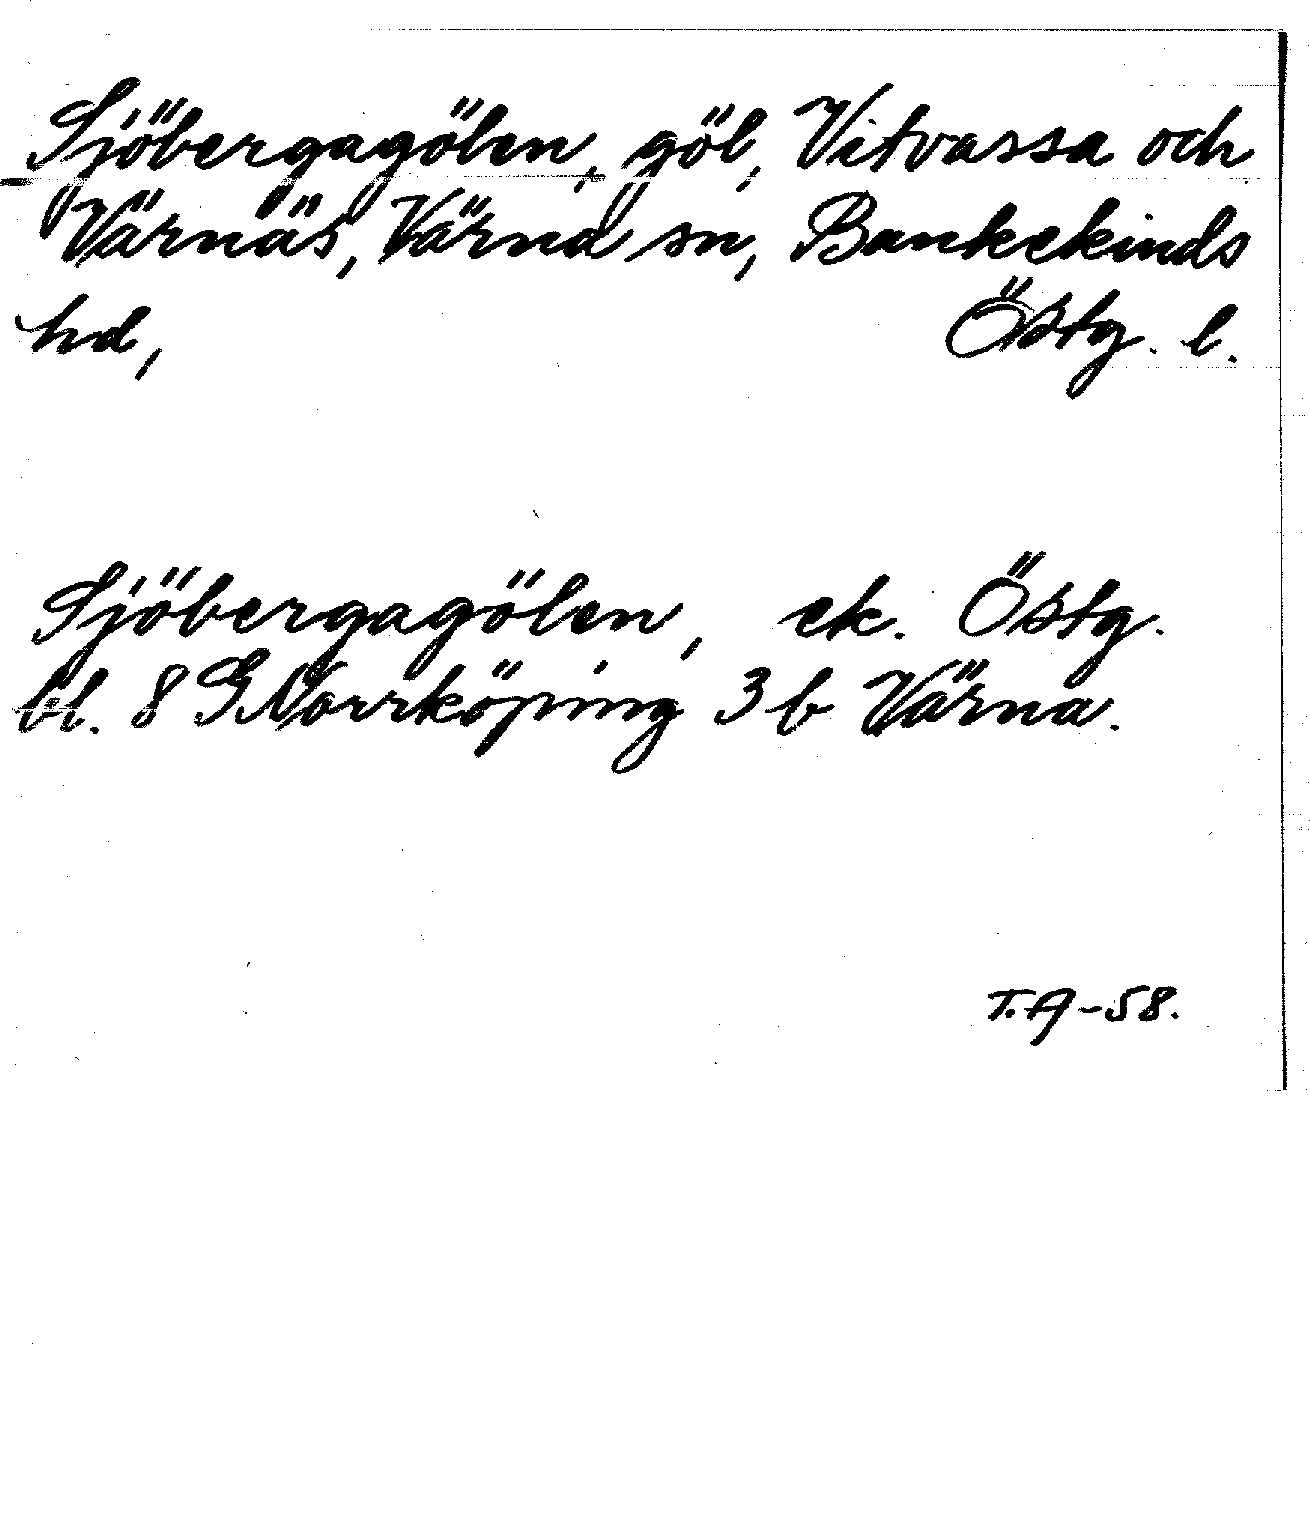 Sjöbergagölen, göl, Vitvassa och
Värnäs, Värna sn, Bankekinds
hd, Östg. l.
Sjöbergagölen, ek. Östg.
bl. 8 G Norrköping 3 b Värna.
T.A-58.